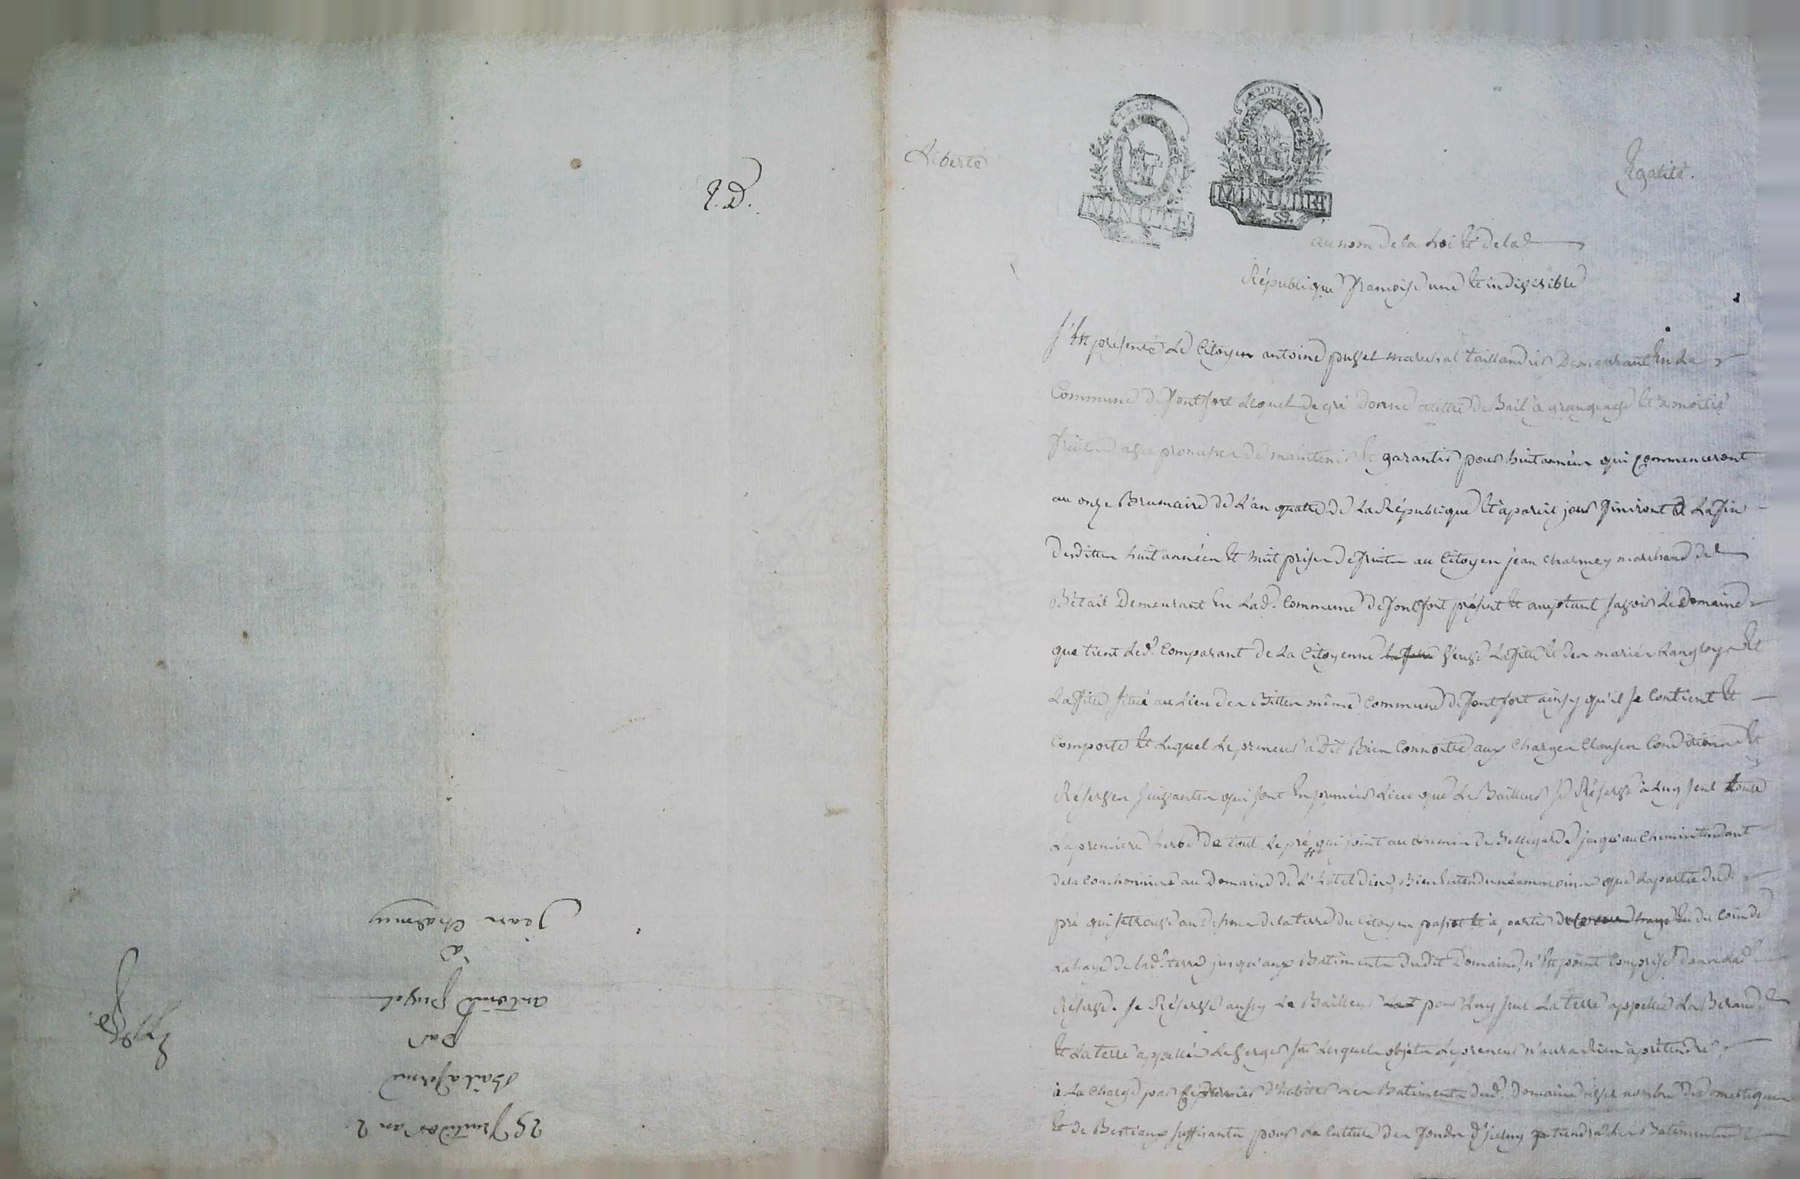 Liberté
Egalité.
ET LA LOI
MINUTE
ET LA LOI
52.
au nom de la Loi Et de la
République françoise une Et indivisible
fut présent Le Citoyen antoine puzel marechal taillandier Demeurant En La
Commune de Fontfort Lequel de gré donne à titre de Bail à grangeage Et à moitié
fruits avec promesse de maintenir Et garantir pour huit années qui commenceront
au onze Brumaire de L'an quatre de La République Et à pareil jour finiront à La fin
desdittes huit années Et huit prises de fruits au Citoyen jean charmey marchand de
Bétail Demeurant En Lad. Commune de Fontfort présent Et acceptant sçavoir Le Domaine
que tient Led. Comparant de La Citoyenne veuve Lafitte Et des mariés Langloys Et
Lafitte situé au Lieu des même Commune de Fontfort ainsy qu'il se Contient Et
Comporte Et Lequel Le preneur a dit Bien Connoitre aux Charges Clauses Conditions Et
Réserves suivantes qui sont En premier Lieu que Le Bailleur se Réserve à Luy seul toute
La premiere herbe de tout Le pré qui joint au chemin de Bellegarde jusqu'au Chemin tendant
de la au Domaine de L'hotel dieu, Bien Entendu néanmoins que La partie dud.
pré qui se trouve au dessus de la terre du Citoyen Et à partir du Coin de
La haye de lad. terre jusqu'aux Batiments dudit Domaine, n'Est point Comprise dans Lad.
Réserve. se Réserve aussy Le Bailleur pour Luy seul La terre appellée La
Et La terre appellée Le verger sur Lesquels objets Le preneur n'aura Rien à prétendre,
à La Charge par Le preneur d'habiter Les Batiments dud. Domaine avec nombre de Domestiques
Et de Bestiaux suffisants pour La Culture des fonds d'iceluy tiendra Les Batiments
25 fructidor an 2
Bail à ferme
Par
antoine puzel
à
Jean Charmey